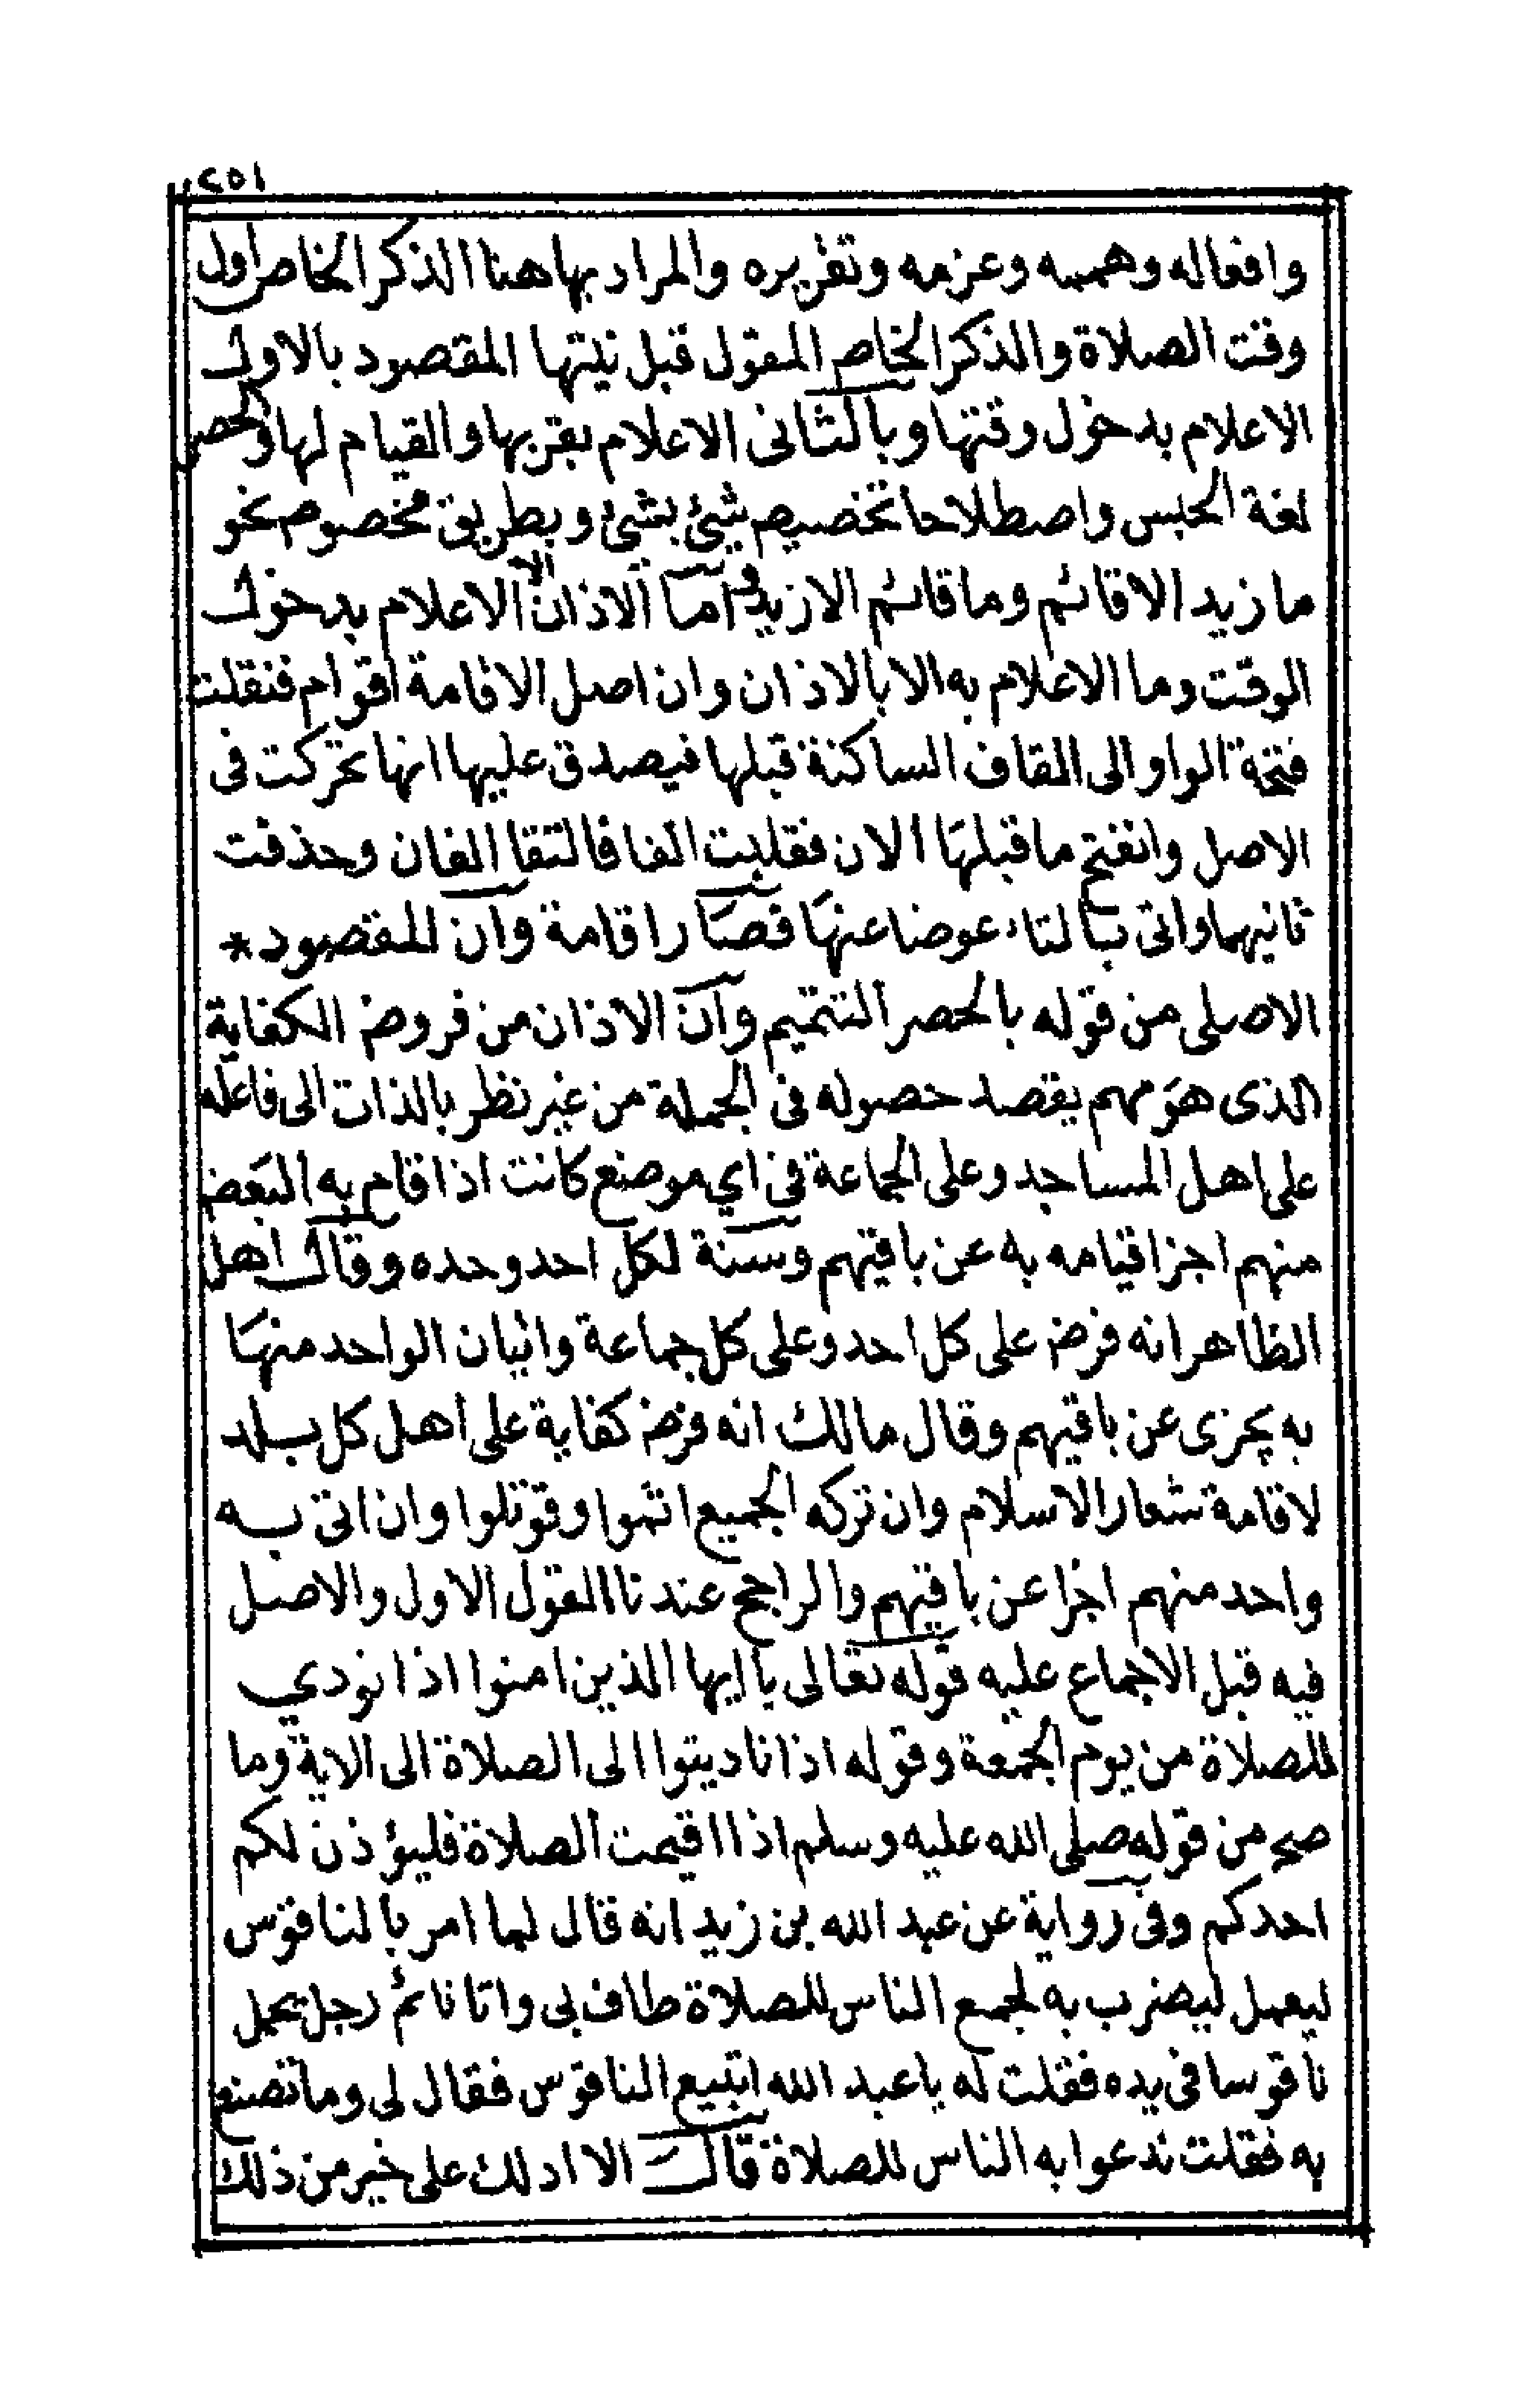 ٢٥١
وافعاله وهمه وعزمه وتقريره والمراد بها هنا الذكر الخاص اول
وقت الصلاة والذكر الخاص المقول قبل نيتها المقصود بالاول
الاعلام بدخول وقتها وبالثاني الاعلام بقربها والقيام لها والحصر
لغة الحبس واصطلاحا تخصيص شيئ بشيئ وبطريق مخصوص نحو
ما زيد الا قائم وما قائم الا زيد وفى اما الاذان الا الاعلام بدخول
الوقت وما الاعلام به الا بالاذان وان اصل الاقامة اقوام فنقلت
فتحة الواو الى القاف الساكنة قبلها فيصدق عليها انها تحركت فى
الاصل وانفتح ما قبلها الان فقلبت الفا فالتقا الفان وحذفت
ثانيهما واتى بالتاء عوضا عنها فصار اقامة وان المقصود *
الاصلى من قوله بالحصر التتميم وان الاذان من فروض الكفاية
الذى هو مهم يقصد حصوله فى الجملة من غير نظر بالذات الى فاعله
على اهل المساجد وعلى الجماعة في اي موضع كانت اذا قام به البعض
منهم اجزا قيامه به عن باقيهم وسنة لكل احد وحده وقال اهل
الظاهر انه فرض على كل احد وعلى كل جماعة واتيان الواحد منها
به يجزى عن باقيهم وقال مالك انه فرض كفاية على اهل كل بلد
لاقامة شعار الاسلام وان تركه الجميع اثموا وقوتلوا وان اتى به
واحد منهم اجزا عن باقيهم والراجح عندنا القول الاول والاصل
فيه قبل الاجماع عليه قوله تعالى يا ايها الذين امنوا اذا نودي
للصلاة من يوم الجمعة وقوله اذا ناديتوا الى الصلاة الى الاية وما
صح من قوله صلى الله عليه وسلم اذا اقيمت الصلاة فليؤذن لكم
احدكم وفى رواية عن عبد الله بن زيد انه قال لما امر بالناقوس
ليعمل ليضرب به لجمع الناس للصلاة طاف بى وانا نائم رجل يحمل
ناقوسا فى يده فقلت له يا عبد الله اتبيع الناقوس فقال لى وما تصنع
به فقلت ندعوا به الناس للصلاة قال الا ادلك على خير من ذلك